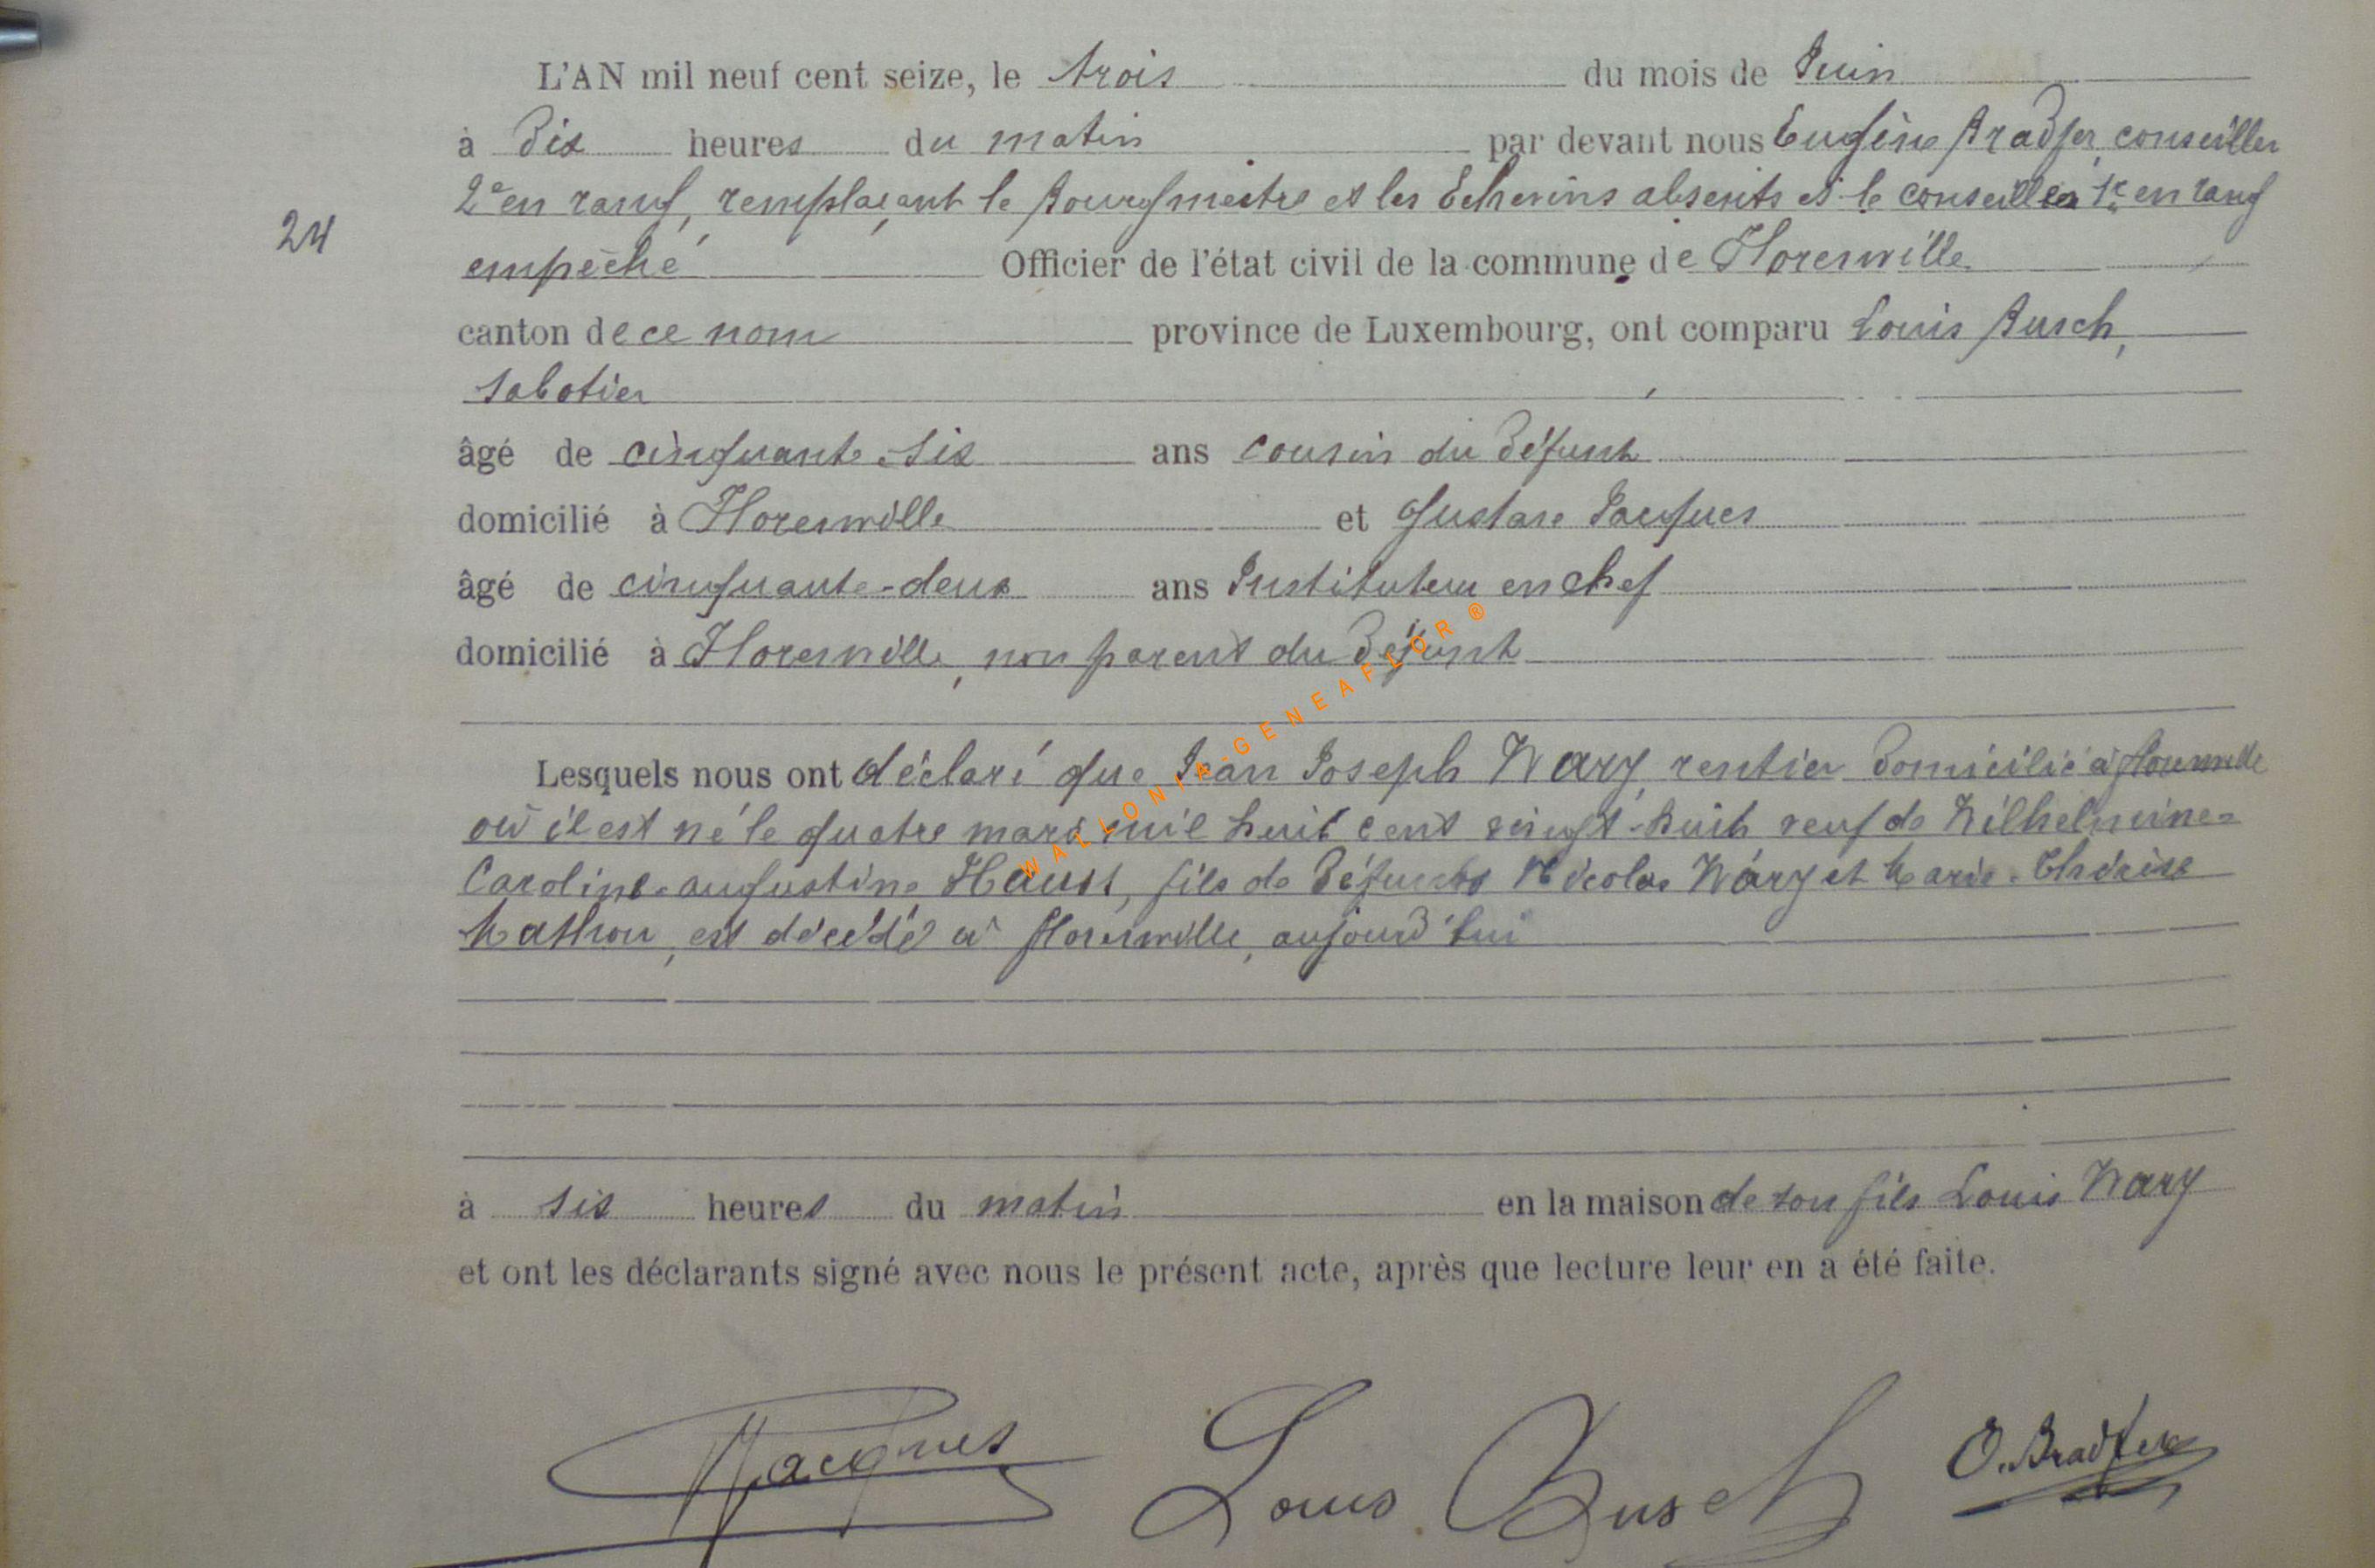 L'AN mil neuf cent seize, le trois du mois de Juin
à dix heures du matin par devant nous Eugène Bradfer, conseiller
2e en rang, remplaçant le Bourgmestre et les Echevins absents et le conseiller 1er en rang
24
empêché Officier de l'état civil de la commune de Florenville
canton de ce nom province de Luxembourg, ont comparu Louis Busch,
sabotier
âgé de cinquante six ans cousin du défunt
domicilié à Florenville et Gustave Jacques
âgé de cinquante-deux ans Instituteur en chef
domicilié à Florenville, non parent du défunt
WALLONIA-GENEAFLOR®
Lesquels nous ont déclaré que Jean Joseph Wary, rentier domicilié à Florenville
où il est né le quatre mars mil huit cent vingt-huit veuf de Wilhelmine-
Caroline-augustine Hauss, fils de défunts Nicolas Wary et Marie-Thérèse
Mathon, est décédé à Florenville, aujourd'hui
à six heures du matin en la maison de son fils Louis Wary
et ont les déclarants signé avec nous le présent acte, après que lecture leur en a été faite.
Jacques Louis Busch O. Bradfer